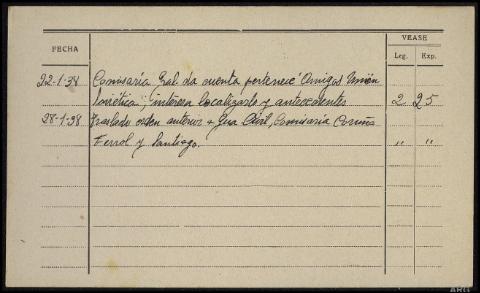 FECHA
VEASE
Leg. Exp.
22-1-38 Comisaría Gral da cuenta pertenece Amigos Unión
Sovietica; interesa localizarlo y antecedentes 2 25
28-1-38 Traslado orden anterior a Gua Civil, Comisaría Coruña
Ferrol y Santiago. " "